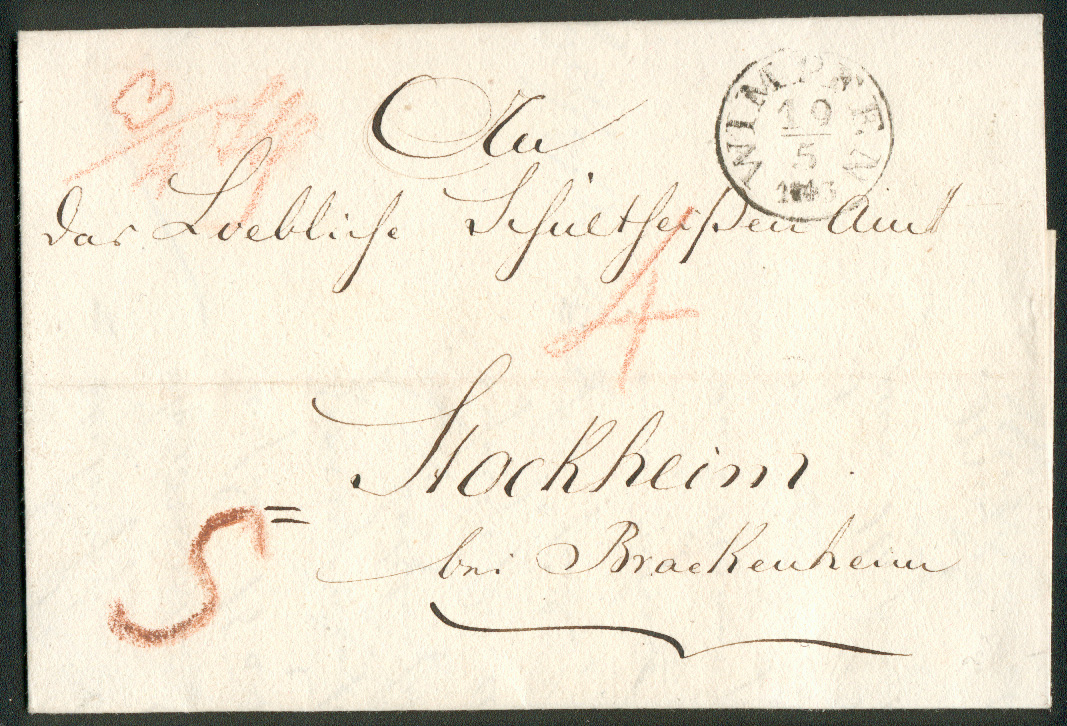 An
das Loebliche Schultheißen Amt
WIMPFEN
19
5
1843
4
Stockheim
bei Brackenheim